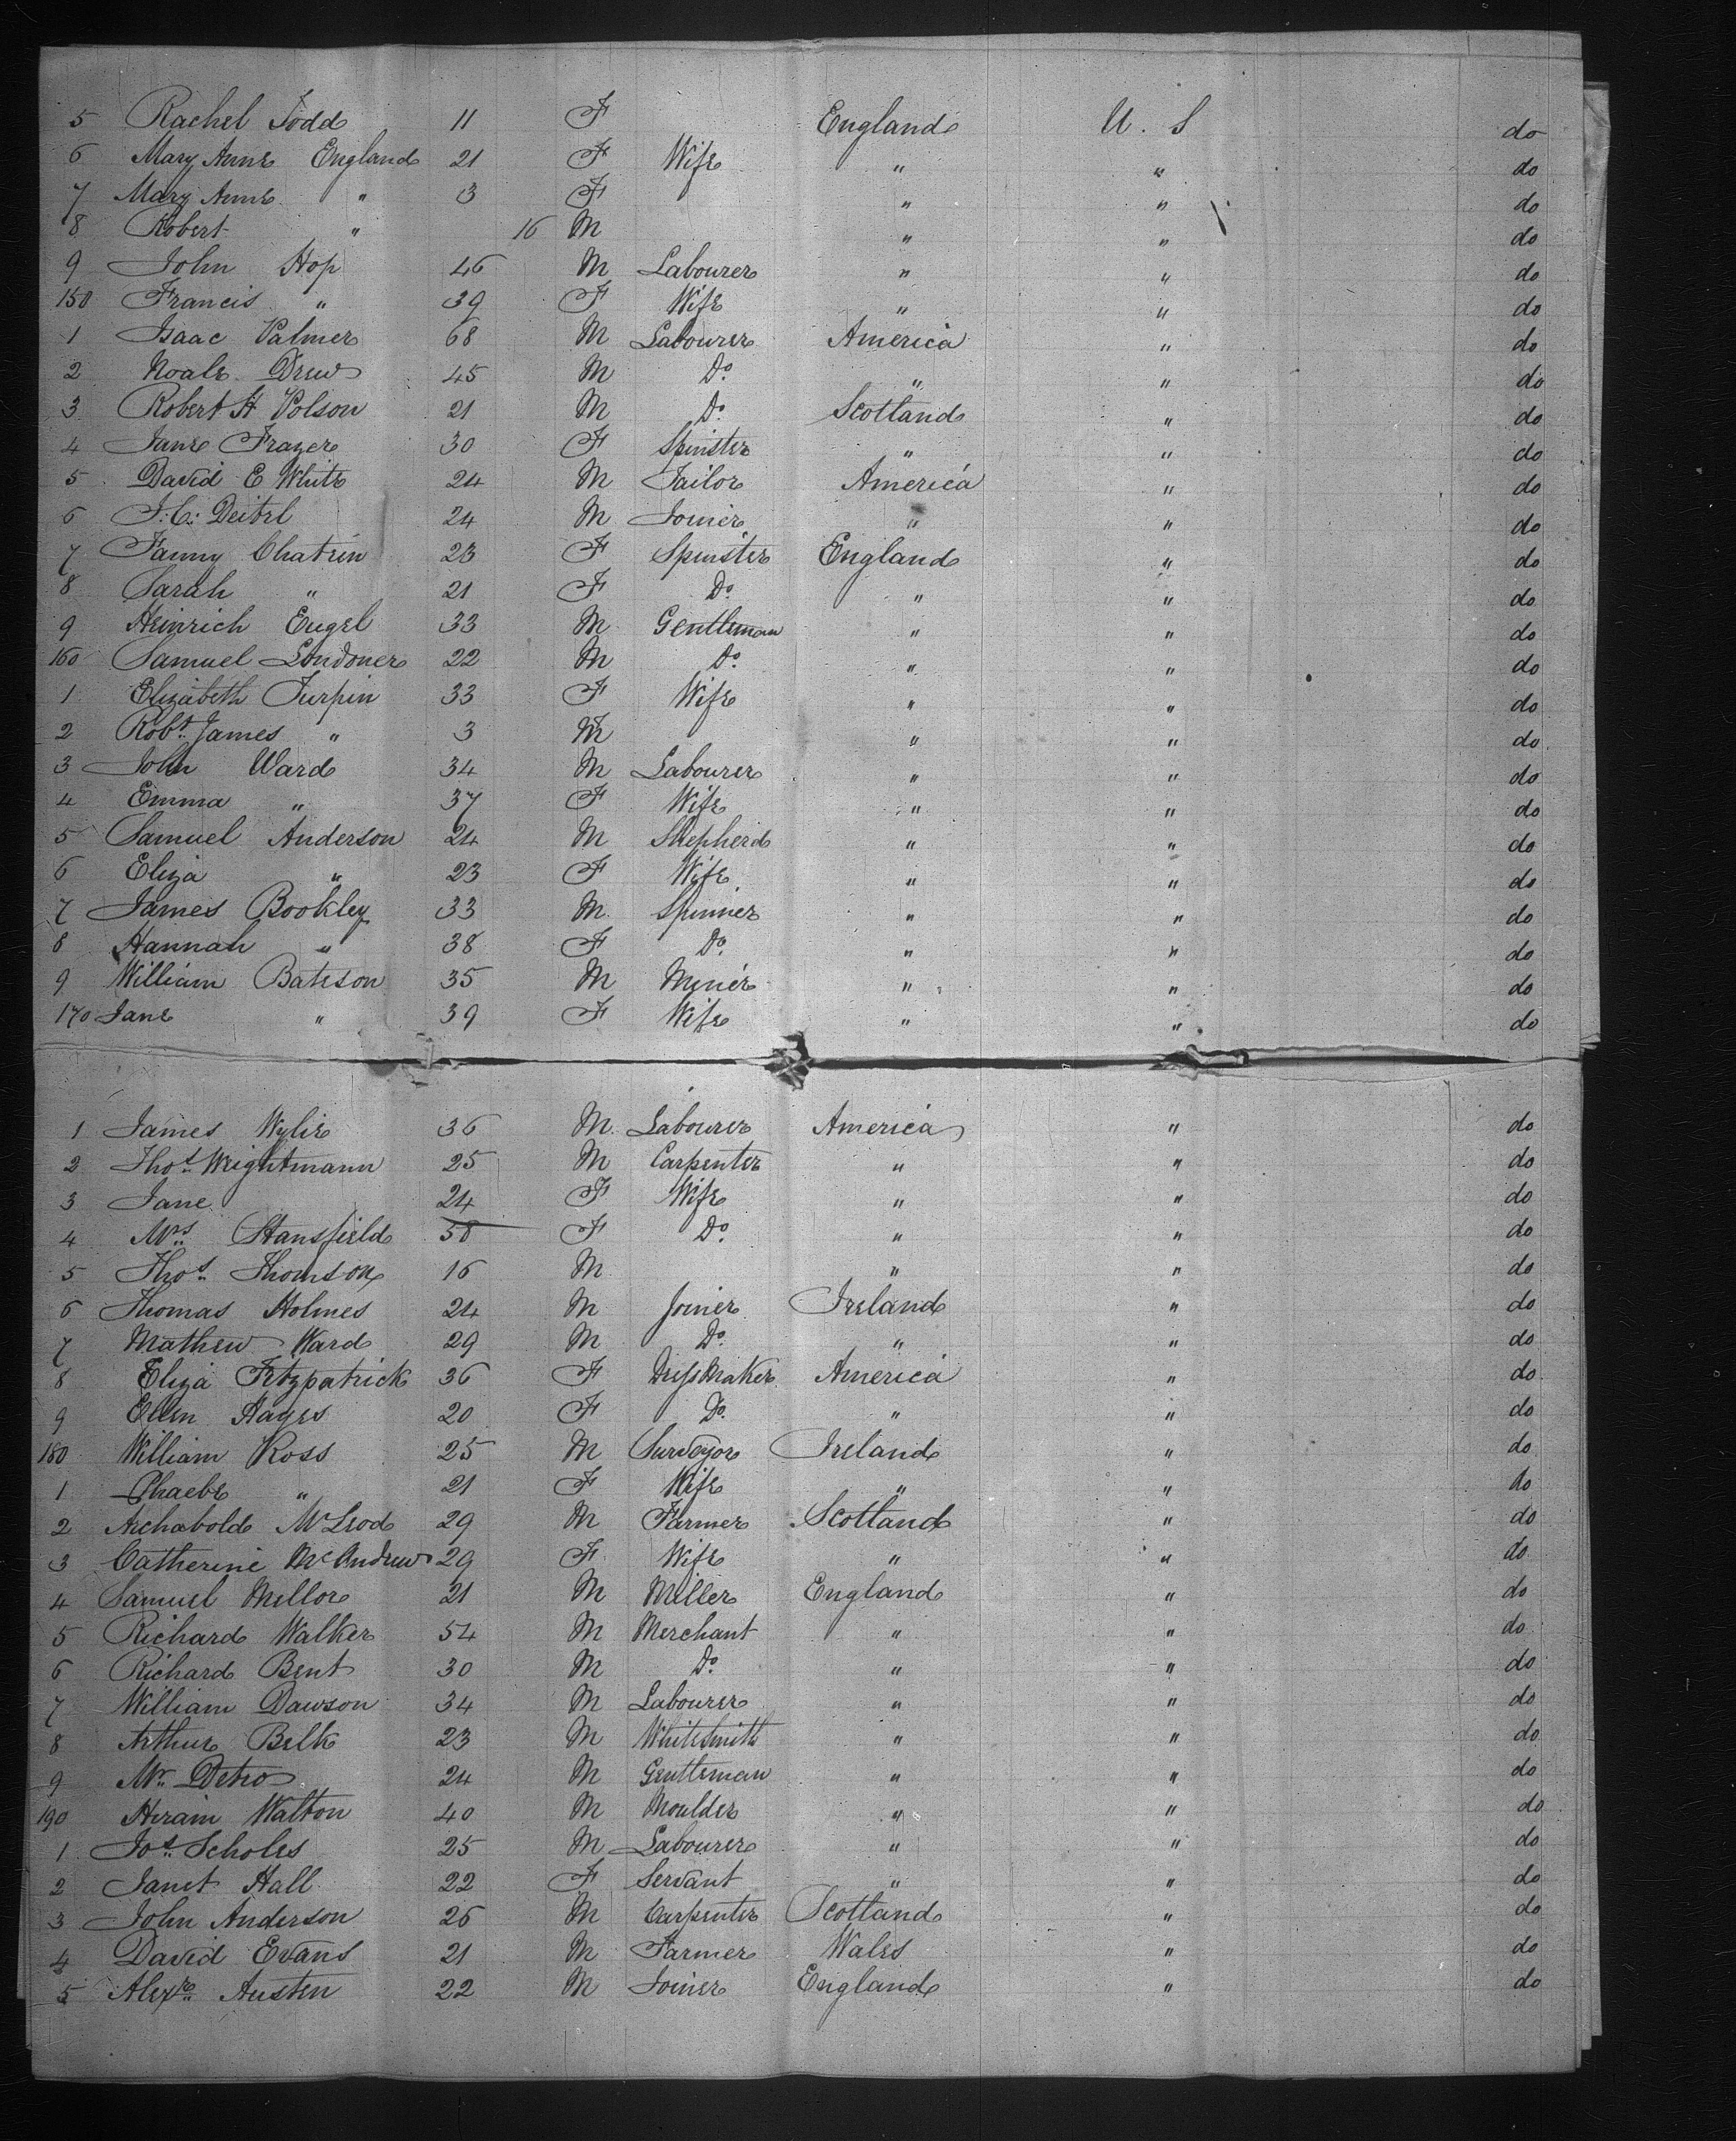 5 Rachel Todd 11 F England U. S do
6 Mary Anne England 21 F Wife " " do
7 Mary Anne " 3 F " " do
8 Robert " 16 M " " do
9 John Hop 46 M Labourer " " do
150 Francis " 39 F Wife " " do
1 Isaac Palmer 68 M Labourer America " do
2 Noale Drew 45 M Do. " " do
3 Robert H Polson 21 M Do. Scotland " do
4 Jane Frazer 30 F Spinster " " do
5 David E White 24 M Tailor America " do
6 J. C. 24 M Joiner " " do
7 Fanny Chatrin 23 F Spinster England " do
8 Sarah " 21 F Do. " " do
9 Heinrich Engel 33 M Gentleman " " do
160 Samuel Londoner 22 M Do. " " do
1 Elizabeth Turpin 33 F Wife " " do
2 Robt. James " 3 M " " do
3 John Ward 34 M Labourer " " do
4 Emma " 37 F Wife " " do
5 Samuel Anderson 24 M Shepherd " " do
6 Eliza " 23 F Wife " " do
7 James Bookley 33 M Spinner " " do
8 Hannah " 38 F Do. " " do
9 William Bateson 35 M Miner " " do
170 Jane " 39 F Wife " " do
1 James Wylie 36 M Labourer America " do
2 Thos. Weightmann 25 M Carpenter " " do
3 Jane 24 F Wife " " do
4 Mrs. Stansfield 58 F Do. " " do
5 Thos. Thomson 16 M " " do
6 Thomas Holmes 24 M Joiner Ireland " do
7 Mathew Ward 29 M Do. " " do
8 Eliza Fitzpatrick 36 F Dressmaker America " do
9 Ellen Hayes 20 F Do. " " do
180 William Ross 25 M Surveyor Ireland " do
1 Phaebe " 21 F Wife " " do
2 Archabold McLeod 29 M Farmer Scotland " do
3 Catherine McAndrew 29 F Wife " " do
4 Samuel Mellor 21 M Miller England " do
5 Richard Walker 54 M Merchant " " do
6 Richard Bent 30 M Do. " " do
7 William Dawson 34 M Labourer " " do
8 Arthur Belk 23 M Whitesmith " " do
9 Mr. Detro 24 M Gentleman " " do
190 Hiram Walton 40 M Moulder " " do
1 Jos. Scholes 25 M Labourer " " do
2 Janet Hall 22 F Servant " " do
3 John Anderson 26 M Carpenter Scotland " do
4 David Evans 21 M Farmer Wales " do
5 Alexr. Austen 22 M Joiner England " do